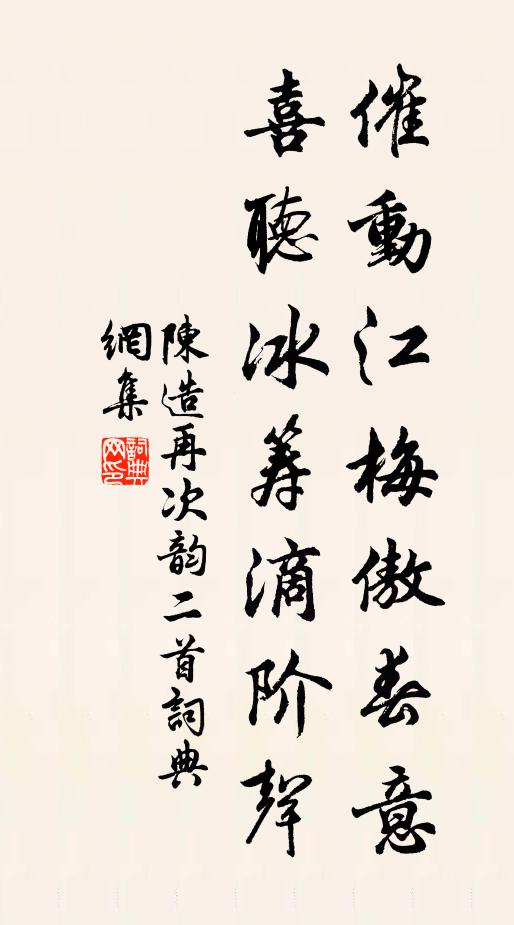 催動江梅傲春意
喜聽冰筹滴阶聲
陳造再次韵二首詞典
網集
詞典
网印